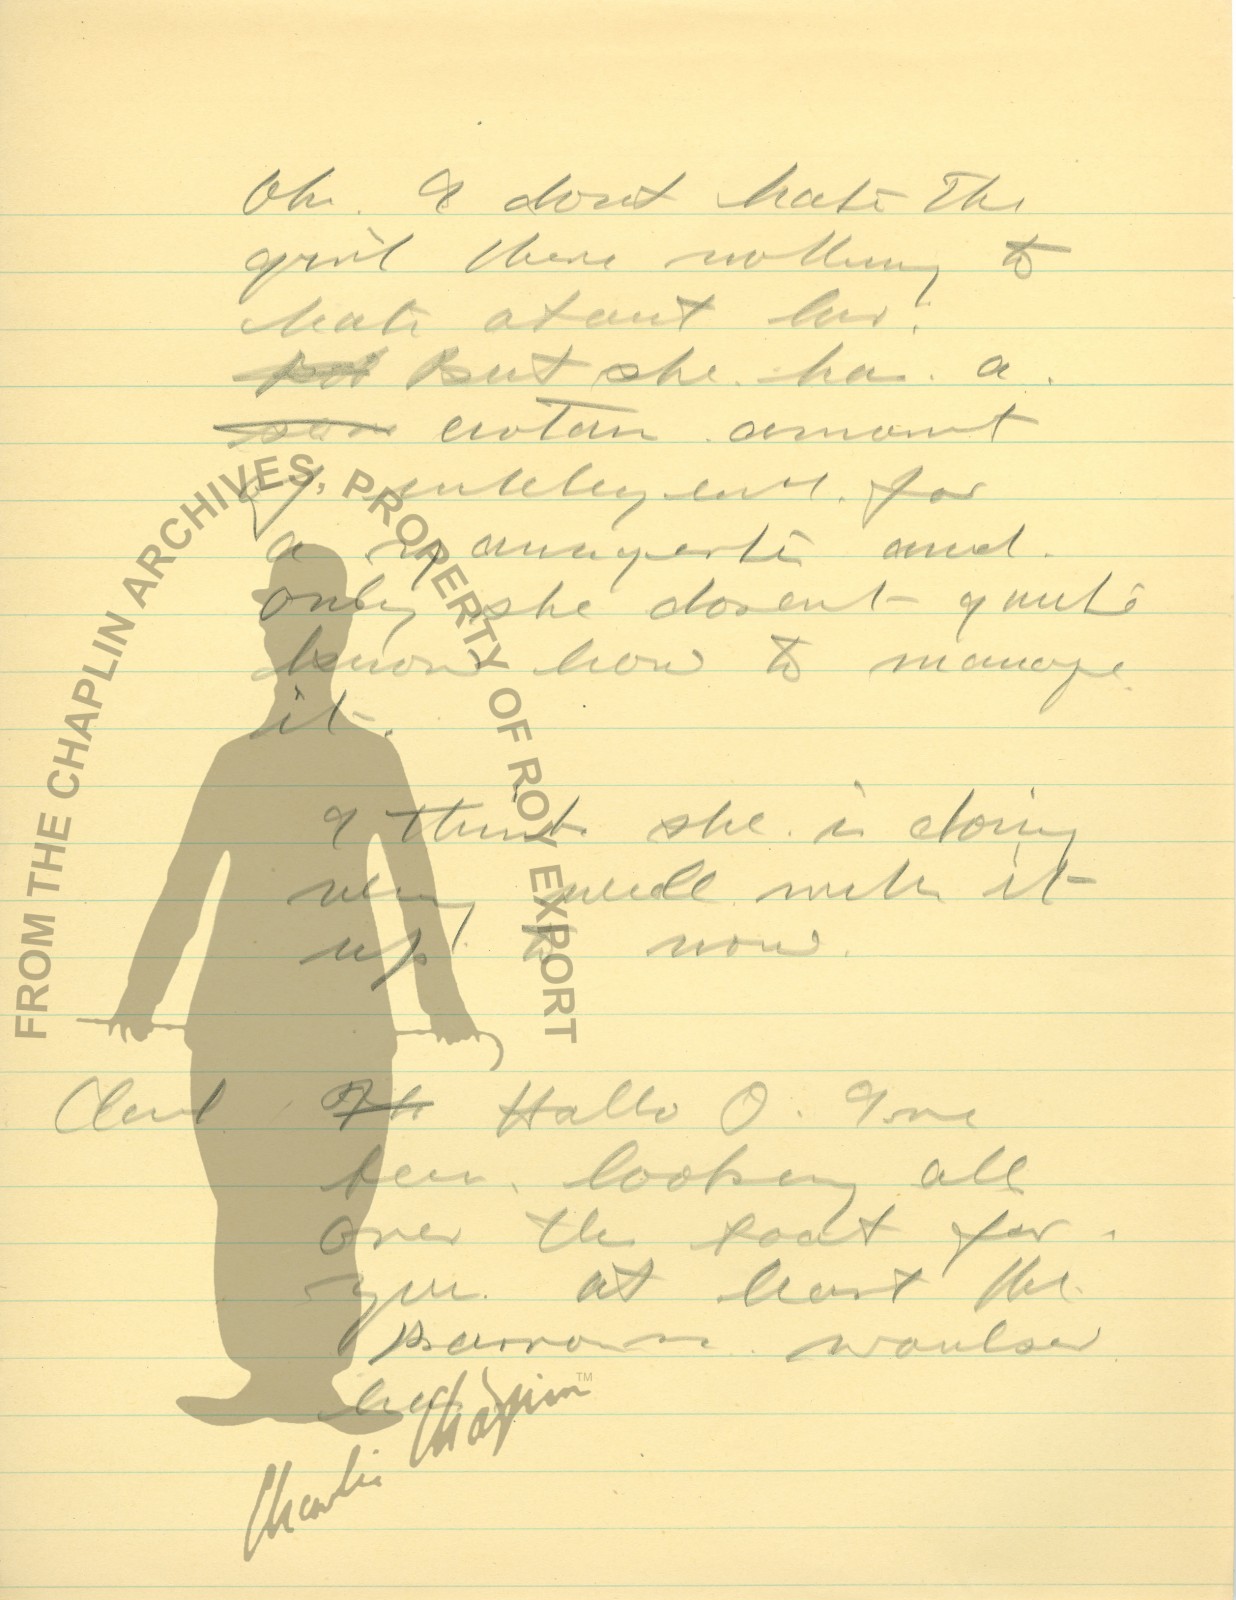 Oh. I dont hate the
girl there nothing to
hate about her.
But she has a
certain amount
of intelligent. for
a and.
only she dosent quite
know how to manage
it.
I think she is doing
very well with it
up to now.
Hallo O. I've
been looking all
over the boat for
you. at least the
FROM THE CHAPLIN ARCHIVES, PROPERTY OF ROY EXPORT
Charlie Chaplin™